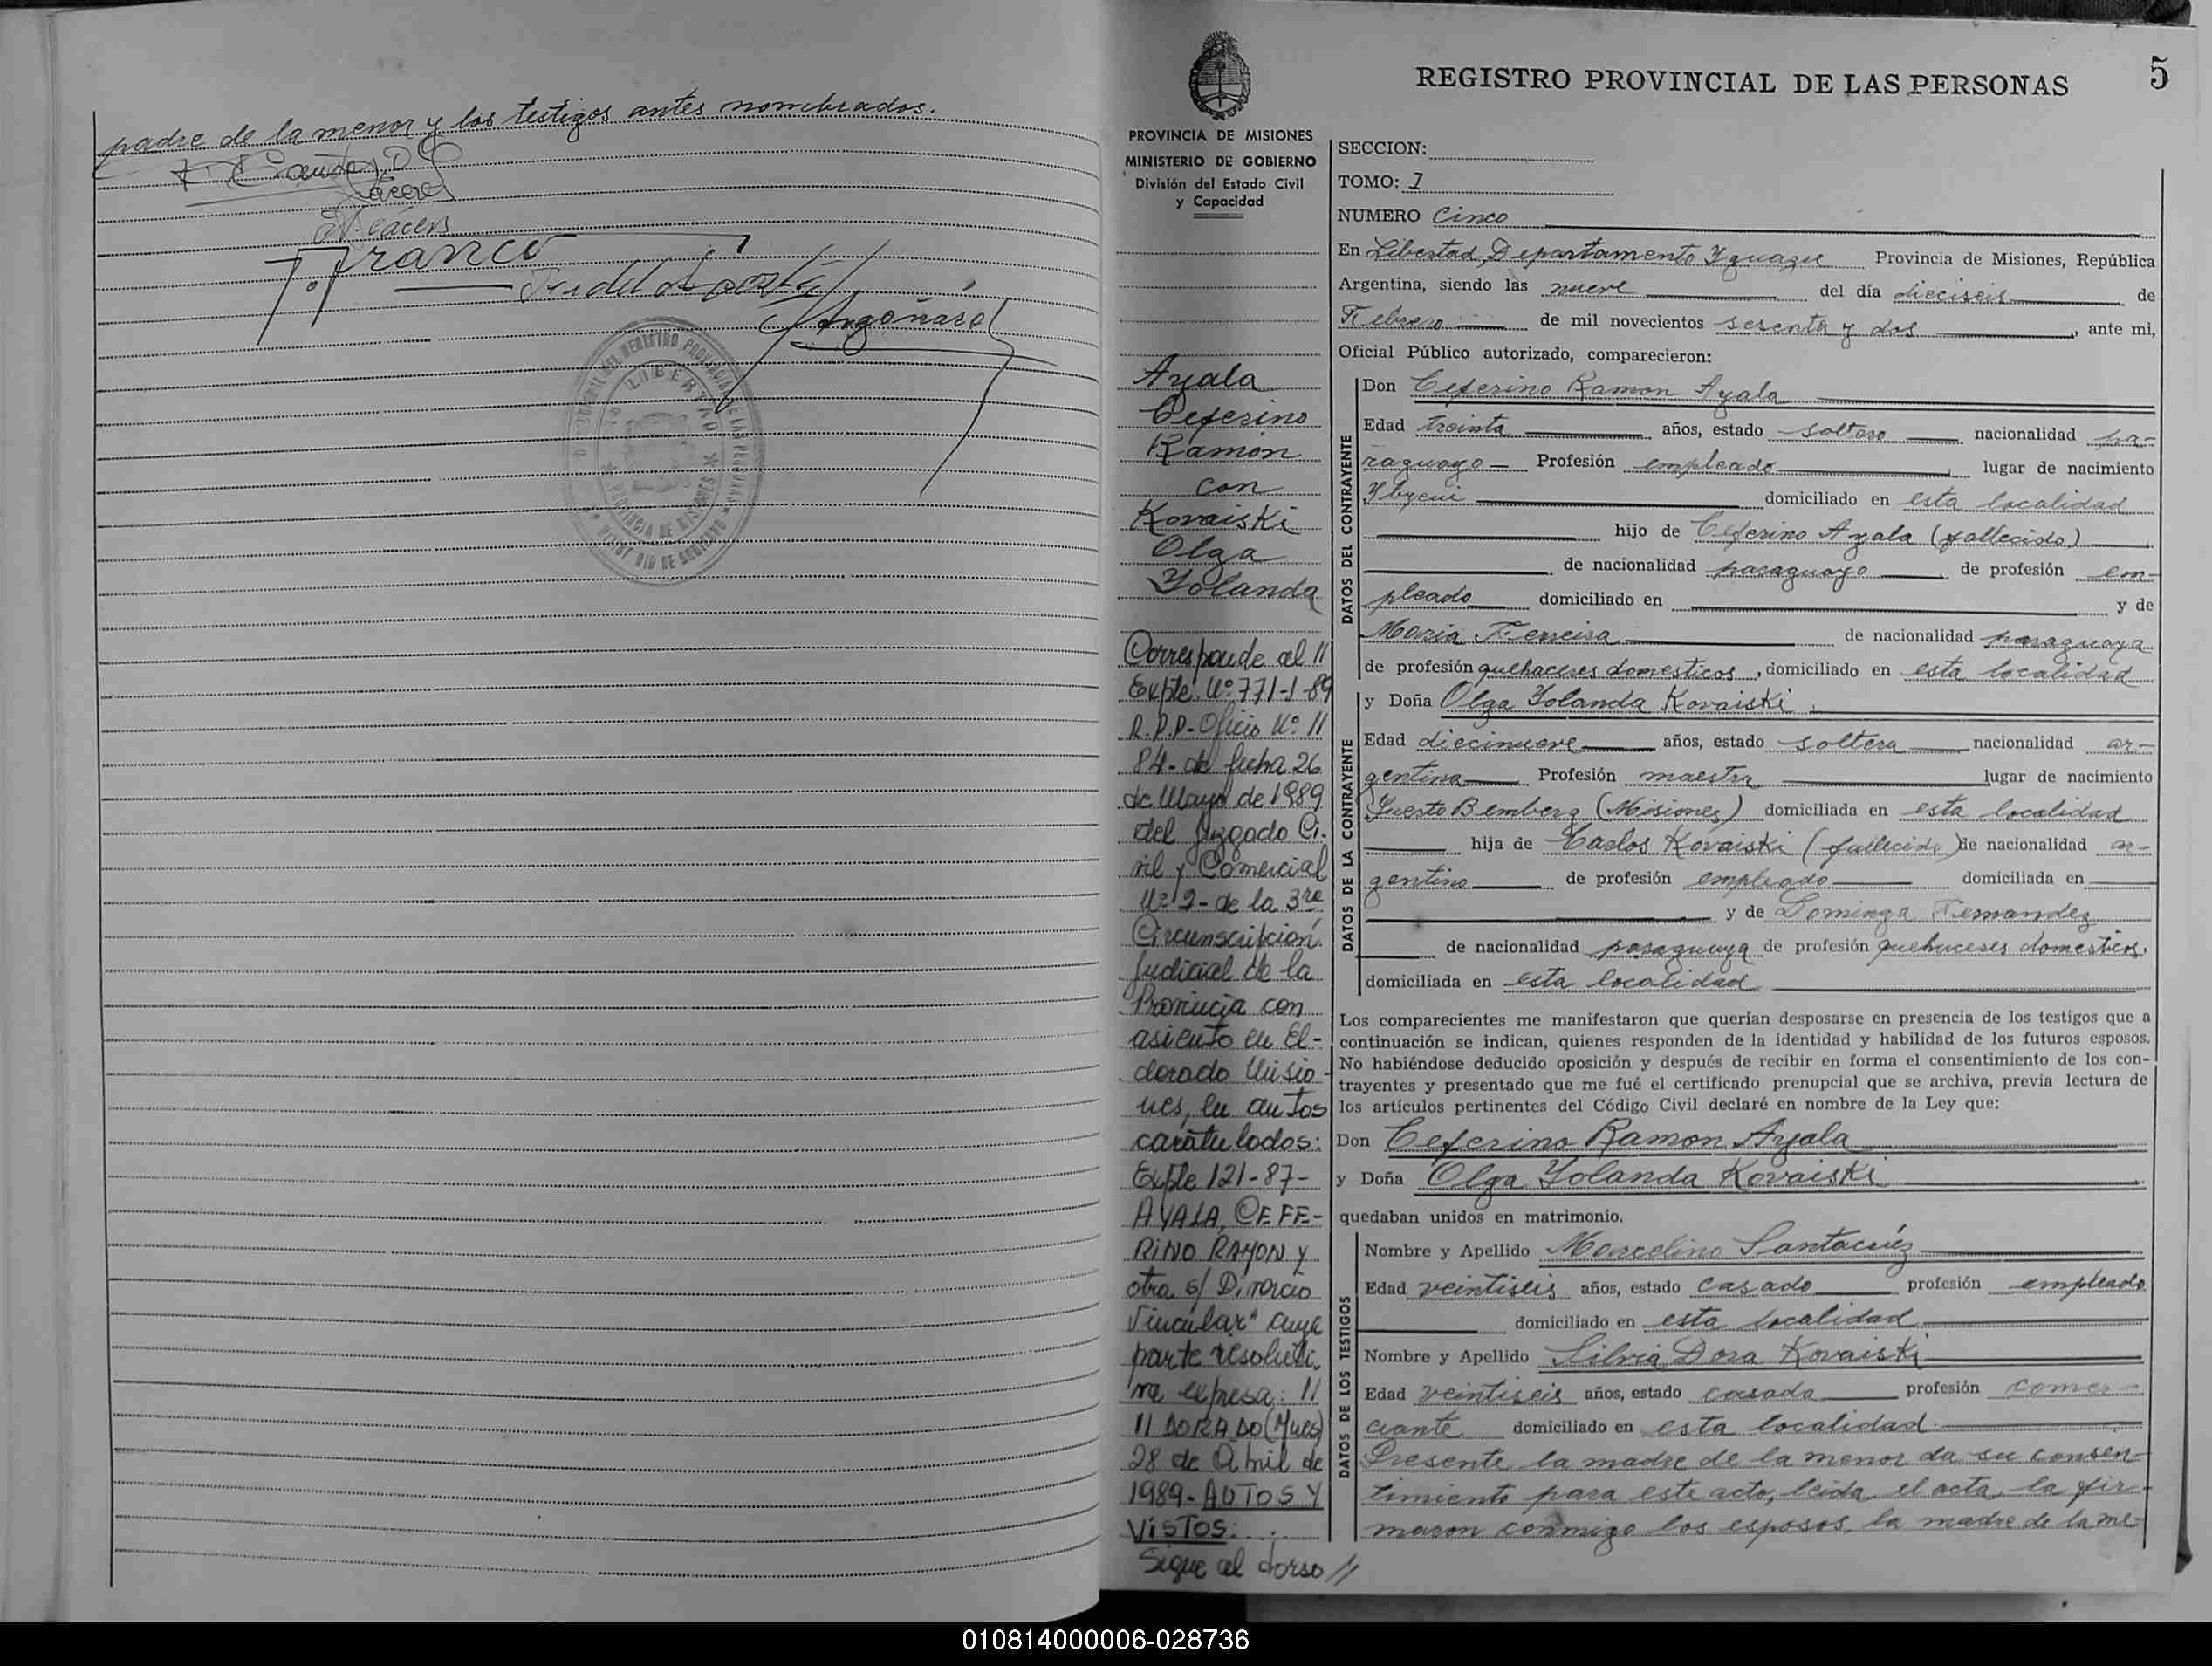 padre de la menor y los testigos antes nombrados.
T. Franco
LIBERTAD
PROVINCIA DE MISIONES
5
REGISTRO PROVINCIAL DE LAS PERSONAS
PROVINCIA DE MISIONES
MINISTERIO DE GOBIERNO
División del Estado Civil
y Capacidad
Ayala
Ceferino
Ramón
con
Kovaiski
Olga
Yolanda
Corresponde al //
Expte. Nº 771-1-89
R.P.P- Oficio Nº 11
84- de fecha 26
de Mayo de 1989
del Juzgado Ci-
vil y Comercial
Nº 2- de la 3ra
Circunscripción
Judicial de la
Provincia con
asiento en El-
dorado Misio-
nes, en autos
caratulados:
Expte 121-87-
AYALA, CEFE-
RINO RAMON Y
otra s/ Divorcio
Vincular" cuya
parte resoluti-
va expresa: //
// DORADO (Mnes)
28 de Abril de
1989- AUTOS Y
VISTOS:
Sigue al dorso //
SECCION:
TOMO: I
NUMERO Cinco
En Libertad, Departamento Yguazu Provincia de Misiones, República
Argentina, siendo las nueve del día dieciseis de
Febrero de mil novecientos sesenta y dos, ante mi,
Oficial Público autorizado, comparecieron:
DATOS DEL CONTRAYENTE
Don Ceferino Ramon Ayala
Edad treinta años, estado soltero nacionalidad pa-
raguayo Profesión empleado lugar de nacimiento
Ybycui domiciliado en esta localidad
hijo de Ceferino Ayala (fallecido)
de nacionalidad paraguayo de profesión em-
pleado domiciliado en y de
Maria Ferreira de nacionalidad paraguaya
de profesión quehaceres domesticos, domiciliado en esta localidad
DATOS DE LA CONTRAYENTE
y Doña Olga Yolanda Kovaiski
Edad diecinueve años, estado soltera nacionalidad ar-
gentina Profesión maestra lugar de nacimiento
Puerto Bemberg (Misiones) domiciliada en esta localidad
hija de Carlos Kovaiski (fallecido) de nacionalidad ar-
gentino de profesión empleado domiciliada en
y de Dominga Fernandez
de nacionalidad paraguaya de profesión quehaceres domesticos,
domiciliada en esta localidad
Los comparecientes me manifestaron que querían desposarse en presencia de los testigos que a
continuación se indican, quienes responden de la identidad y habilidad de los futuros esposos.
No habiéndose deducido oposición y después de recibir en forma el consentimiento de los con-
trayentes y presentado que me fué el certificado prenupcial que se archiva, previa lectura de
los artículos pertinentes del Código Civil declaré en nombre de la Ley que:
Don Ceferino Ramon Ayala
y Doña Olga Yolanda Kovaiski
quedaban unidos en matrimonio.
DATOS DE LOS TESTIGOS
Nombre y Apellido Marcelino Santacruz
Edad veintiseis años, estado casado profesión empleado
domiciliado en esta localidad
Nombre y Apellido Silvia Dora Kovaiski
Edad veintiseis años, estado casada profesión comer-
ciante domiciliado en esta localidad
Presente la madre de la menor da su consen-
timiento para este acto, leida el acta la fir-
maron conmigo los esposos, la madre de la me-
010814000006-028736